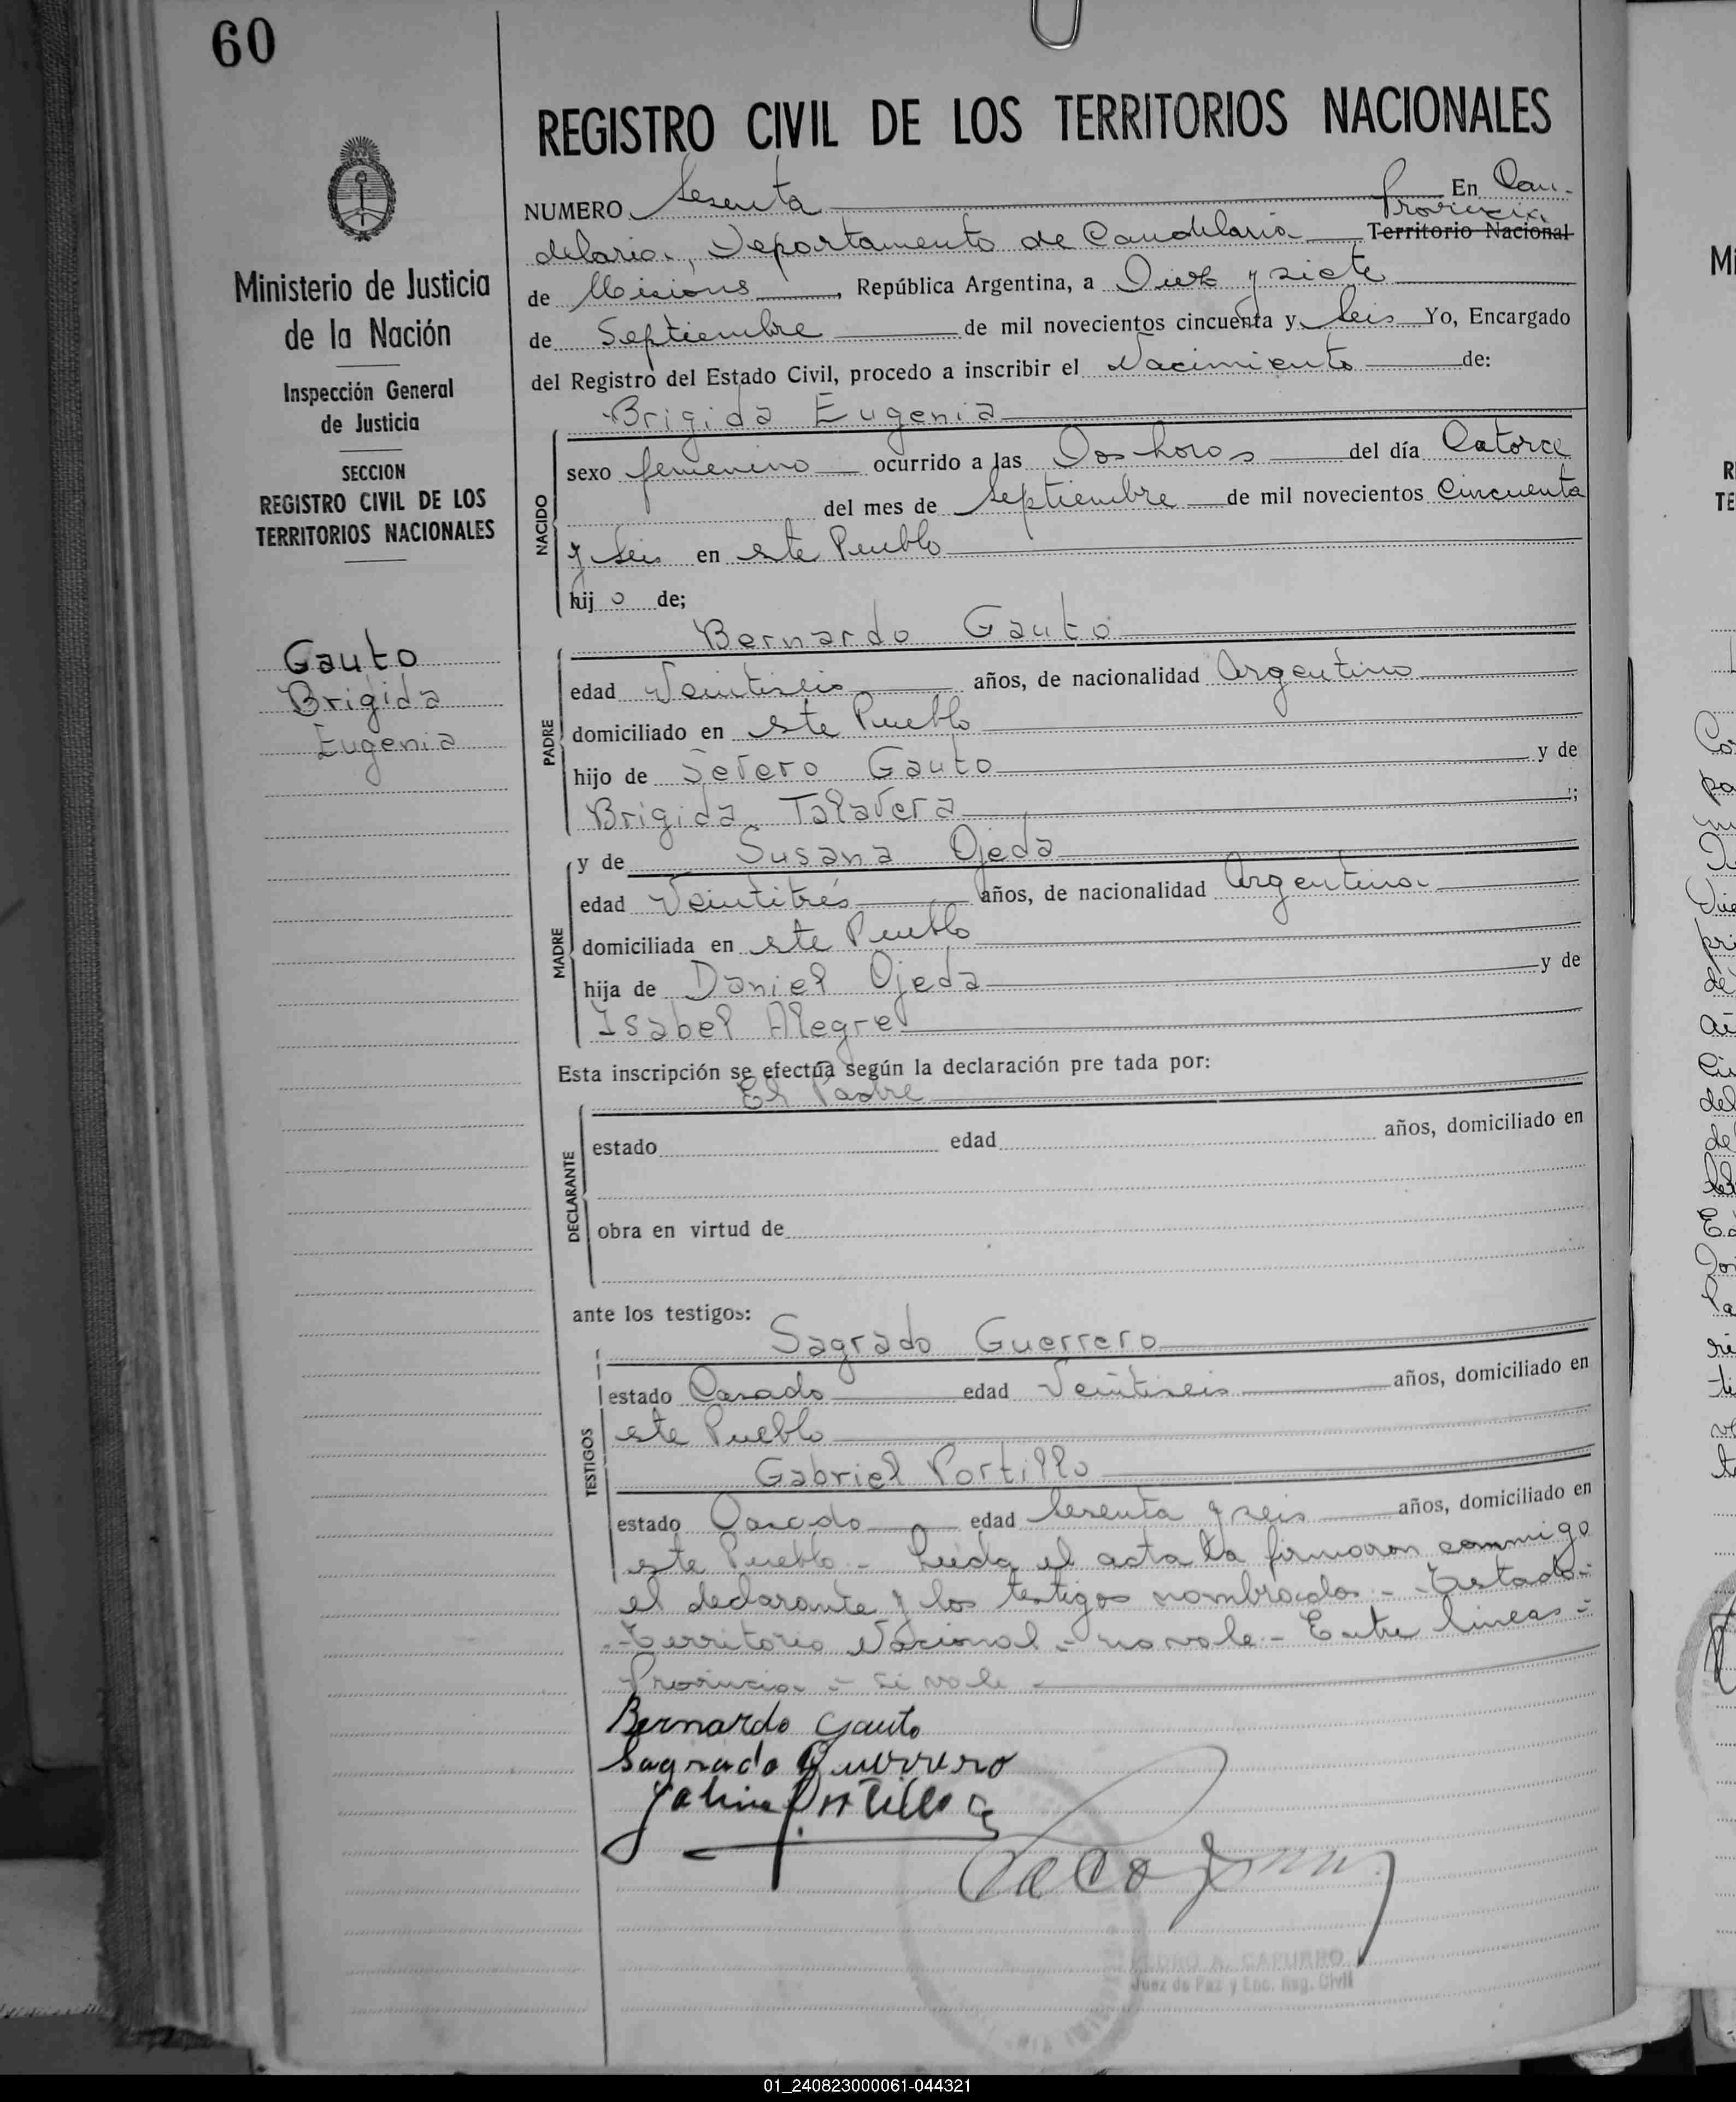 60
REGISTRO CIVIL DE LOS TERRITORIOS NACIONALES
NUMERO Sesenta En Can-
Provincia
delaria, Departamento de Candelaria Territorio Nacional
de Misiones, República Argentina, a Diez y siete
de Septiembre de mil novecientos cincuenta y seis Yo, Encargado
del Registro del Estado Civil, procedo a inscribir el Nacimiento de:
Brigida Eugenia
NACIDO
sexo femenino ocurrido a las Dos horas del día Catorce
del mes de Septiembre de mil novecientos Cincuenta
y seis en este Pueblo
hijo de;
Bernardo Gauto
PADRE
edad Veintiseis años, de nacionalidad Argentino
domiciliado en este Pueblo
hijo de Severo Gauto y de
Brigida Talavera;
MADRE
y de Susana Ojeda
edad Veintitrés años, de nacionalidad Argentina
domiciliada en este Pueblo
hija de Daniel Ojeda y de
Isabel Alegre
Esta inscripción se efectúa según la declaración pre tada por:
El Padre
DECLARANTE
estado edad años, domiciliado en
obra en virtud de
ante los testigos:
Sagrado Guerrero
TESTIGOS
estado Casado edad Veintiseis años, domiciliado en
este Pueblo
Gabriel Portillo
estado Casado edad Sesenta y seis años, domiciliado en
este Pueblo - Leída el acta la firmaron conmigo
el declarante y los testigos nombrados - Testado:
Territorio Nacional - no vale - Entre lineas -
Provincia - si vale -
Bernardo Gauto
Sagrado Guerrero
Portillo
PEDRO A. CAPURRO
Juez de Paz y Enc. Reg. Civil
Ministerio de Justicia
de la Nación
Inspección General
de Justicia
SECCION
REGISTRO CIVIL DE LOS
TERRITORIOS NACIONALES
Gauto
Brigida
Eugenia
01_240823000061-044321